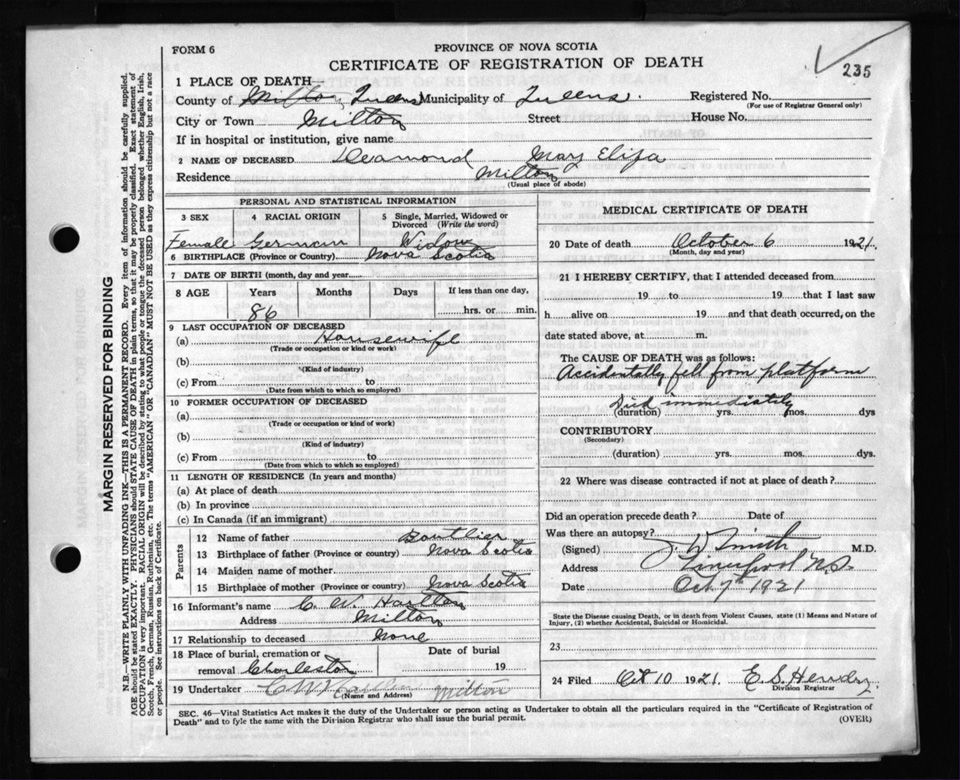 235
FORM 6
PROVINCE OF NOVA SCOTIA
CERTIFICATE OF REGISTRATION OF DEATH
1 PLACE OF DEATH—
County of Milton, Queens Municipality of Queens. Registered No.
(For use of Registrar General only)
City or Town Milton Street House No.
If in hospital or institution, give name
2 NAME OF DECEASED Deamond Mary Eliza
Residence Milton
(Usual place of abode)
PERSONAL AND STATISTICAL INFORMATION
3 SEX 4 RACIAL ORIGIN 5 Single, Married, Widowed or Divorced (Write the word)
Female German Widow
6 BIRTHPLACE (Province or Country) Nova Scotia
7 DATE OF BIRTH (month, day and year)
8 AGE Years Months Days If less than one day,
86 hrs. or min.
9 LAST OCCUPATION OF DECEASED
(a) Housewife
(Trade or occupation or kind or work)
(b)
(Kind of industry)
(c) From to
(Date from which to which so employed)
10 FORMER OCCUPATION OF DECEASED
(a)
(Trade or occupation or kind or work)
(b)
(Kind of industry)
(c) From to
(Date from which to which so employed)
11 LENGTH OF RESIDENCE (In years and months)
(a) At place of death
(b) In province
(c) In Canada (if an immigrant)
Parents
12 Name of father Boutlier
13 Birthplace of father (Province or country) Nova Scotia
14 Maiden name of mother
15 Birthplace of mother (Province or country) Nova Scotia
16 Informant's name C. W.
Address Milton
17 Relationship to deceased None
18 Place of burial, cremation or Date of burial
removal Charleston 19
19 Undertaker C W Milton
(Name and Address)
MEDICAL CERTIFICATE OF DEATH
20 Date of death October 6 1921.
(Month, day and year)
21 I HEREBY CERTIFY, that I attended deceased from
19 to 19 that I last saw
h alive on 19 and that death occurred, on the
date stated above, at m.
The CAUSE OF DEATH was as follows:
Accidentally fell from platform
Died immediately
(duration) yrs. mos. dys
CONTRIBUTORY
(Secondary)
(duration) yrs. mos. dys.
22 Where was disease contracted if not at place of death?
Did an operation precede death? Date of
Was there an autopsy?
(Signed) J W Smith M.D.
Address Liverpool N.S.
Date Oct 7th 1921
State the Disease causing Death, or in death from Violent Causes, state (1) Means and Nature of
Injury, (2) whether Accidental, Suicidal or Homicidal.
23
24 Filed Oct 10 1921. E. S. Hendry.
Division Registrar
SEC. 46—Vital Statistics Act makes it the duty of the Undertaker or person acting as Undertaker to obtain all the particulars required in the "Certificate of Registration of
Death" and to fyle the same with the Division Registrar who shall issue the burial permit.
(OVER)
MARGIN RESERVED FOR BINDING
N.B.—WRITE PLAINLY WITH UNFADING INK—THIS IS A PERMANENT RECORD. Every item of information should be carefully supplied.
AGE should be stated EXACTLY. PHYSICIANS should STATE CAUSE OF DEATH in plain terms, so that it may be properly classified. Exact statement of
OCCUPATION is very important. RACIAL ORIGIN will be described by stating to what people or tongue the deceased person belonged whether English, Irish,
Scotch, French, German, Russian, Ruthenian, etc. The terms "AMERICAN" OR "CANADIAN" MUST NOT BE USED as they express citizenship but not a race
or people. See instructions on back of Certificate.